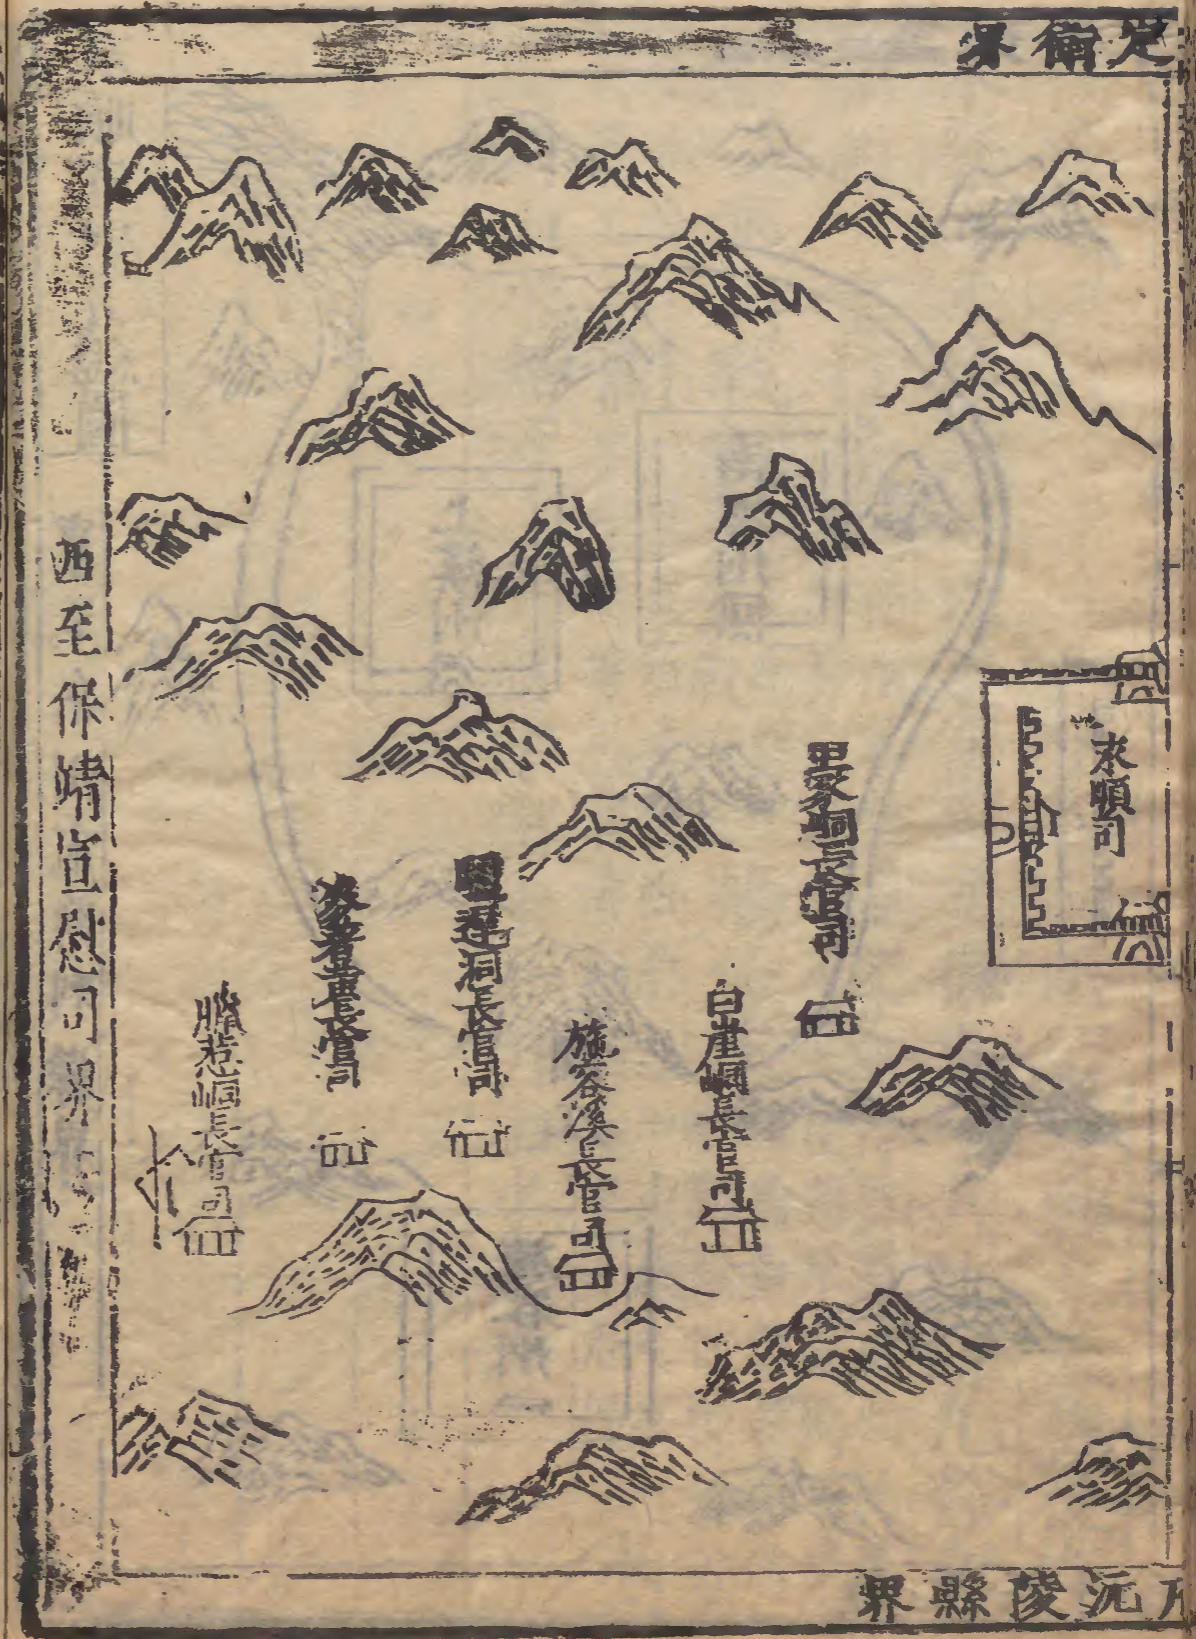 定衛界
永順司
家峒長官司
白崖峒長官司
施容溪長官司
遲洞長官司
麥着黃長官司
臘惹峒長官司
西至保靖宣慰司界
沅陵縣界